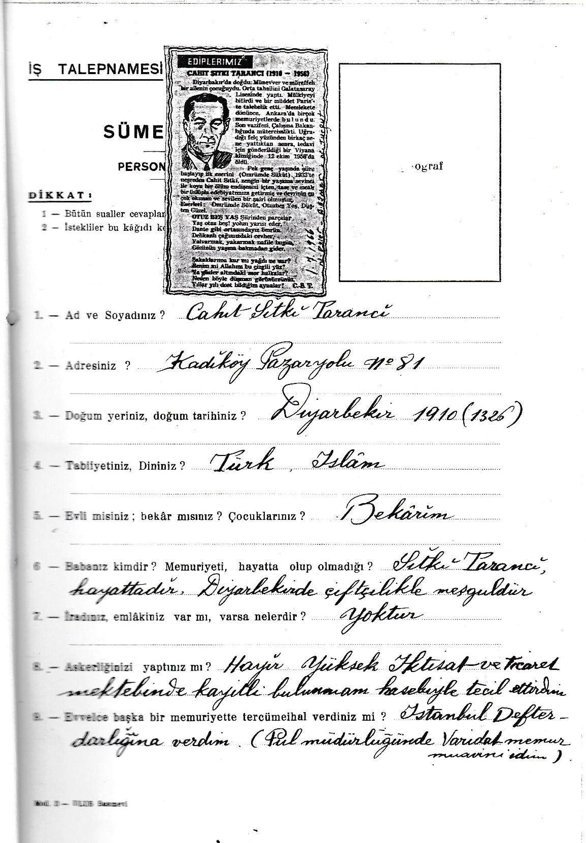 İŞ TALEPNAMESİ
SÜME
PERSON
DİKKAT :
1 — Bütün sualler cevaplar
2 — İstekliler bu kâğıdı k
EDİPLERİMİZ
CAHİT SITKI TARANCI (1910 — 1956)
Diyarbakır'da doğdu. Münevver ve müreffeh
bir ailenin çocuğuydu. Orta tahsilini Galatasaray
Lisesinde yaptı. Mülkiyeyi
bitirdi ve bir müddet Paris'
te talebelik etti. Memlekete
dönünce, Ankara'da birçok
memuriyetlerde bulundu.
Son vazifesi, Çalışma Bakan-
lığında mütercimlikti. Uğra-
dığı felç yüzünden birkaç se-
ne yattıktan sonra, tedavi
için gönderildiği bir Viyana
kliniğinde 12 ekim 1956'da
öldü.
OTUZ BEŞ YAŞ Şiirinden parçalar
Yaş otuz beş! yolun yarısı eder.
Dante gibi ortasındayız ömrün.
Delikanlı çağımızdaki cevher,
Yalvarmak, yakarmak nafile bugün,
Gözünün yaşına bakmadan gider.
Şakaklarıma kar mı yağdı ne var?
Benim mi Allahım bu çizgili yüz?
Ya gözler altındaki mor halkalar?
Neden böyle düşman görünürsünüz,
Yıllar yılı dost bildiğim aynalar?
ograf
1. — Ad ve Soyadınız ? Cahit Sıtkı Tarancı
2. — Adresiniz ? Kadıköy Pazaryolu No 81
3. — Doğum yeriniz, doğum tarihiniz ? Diyarbekir 1910 (1326)
4. — Tabiiyetiniz, Dininiz ? Türk, İslâm
5. — Evli misiniz ; bekâr mısınız ? Çocuklarınız ? Bekârım
6 — Babanız kimdir ? Memuriyeti, hayatta olup olmadığı ? Sıtkı Tarancı,
hayattadır, Diyarbekirde çiftçilikle meşguldür
7. — İradınız, emlâkiniz var mı, varsa nelerdir ? Yoktur
8. — Askerliğinizi yaptınız mı ? Hayır Yüksek İktisat ve ticaret
mektebinde kayıtlı bulunmam hasebiyle tecil ettirdim
9. — Evvelce başka bir memuriyette tercümeihal verdiniz mi ? İstanbul Defter-
darlığına verdim. (Pul müdürlüğünde Varidat memur
muavini idim)